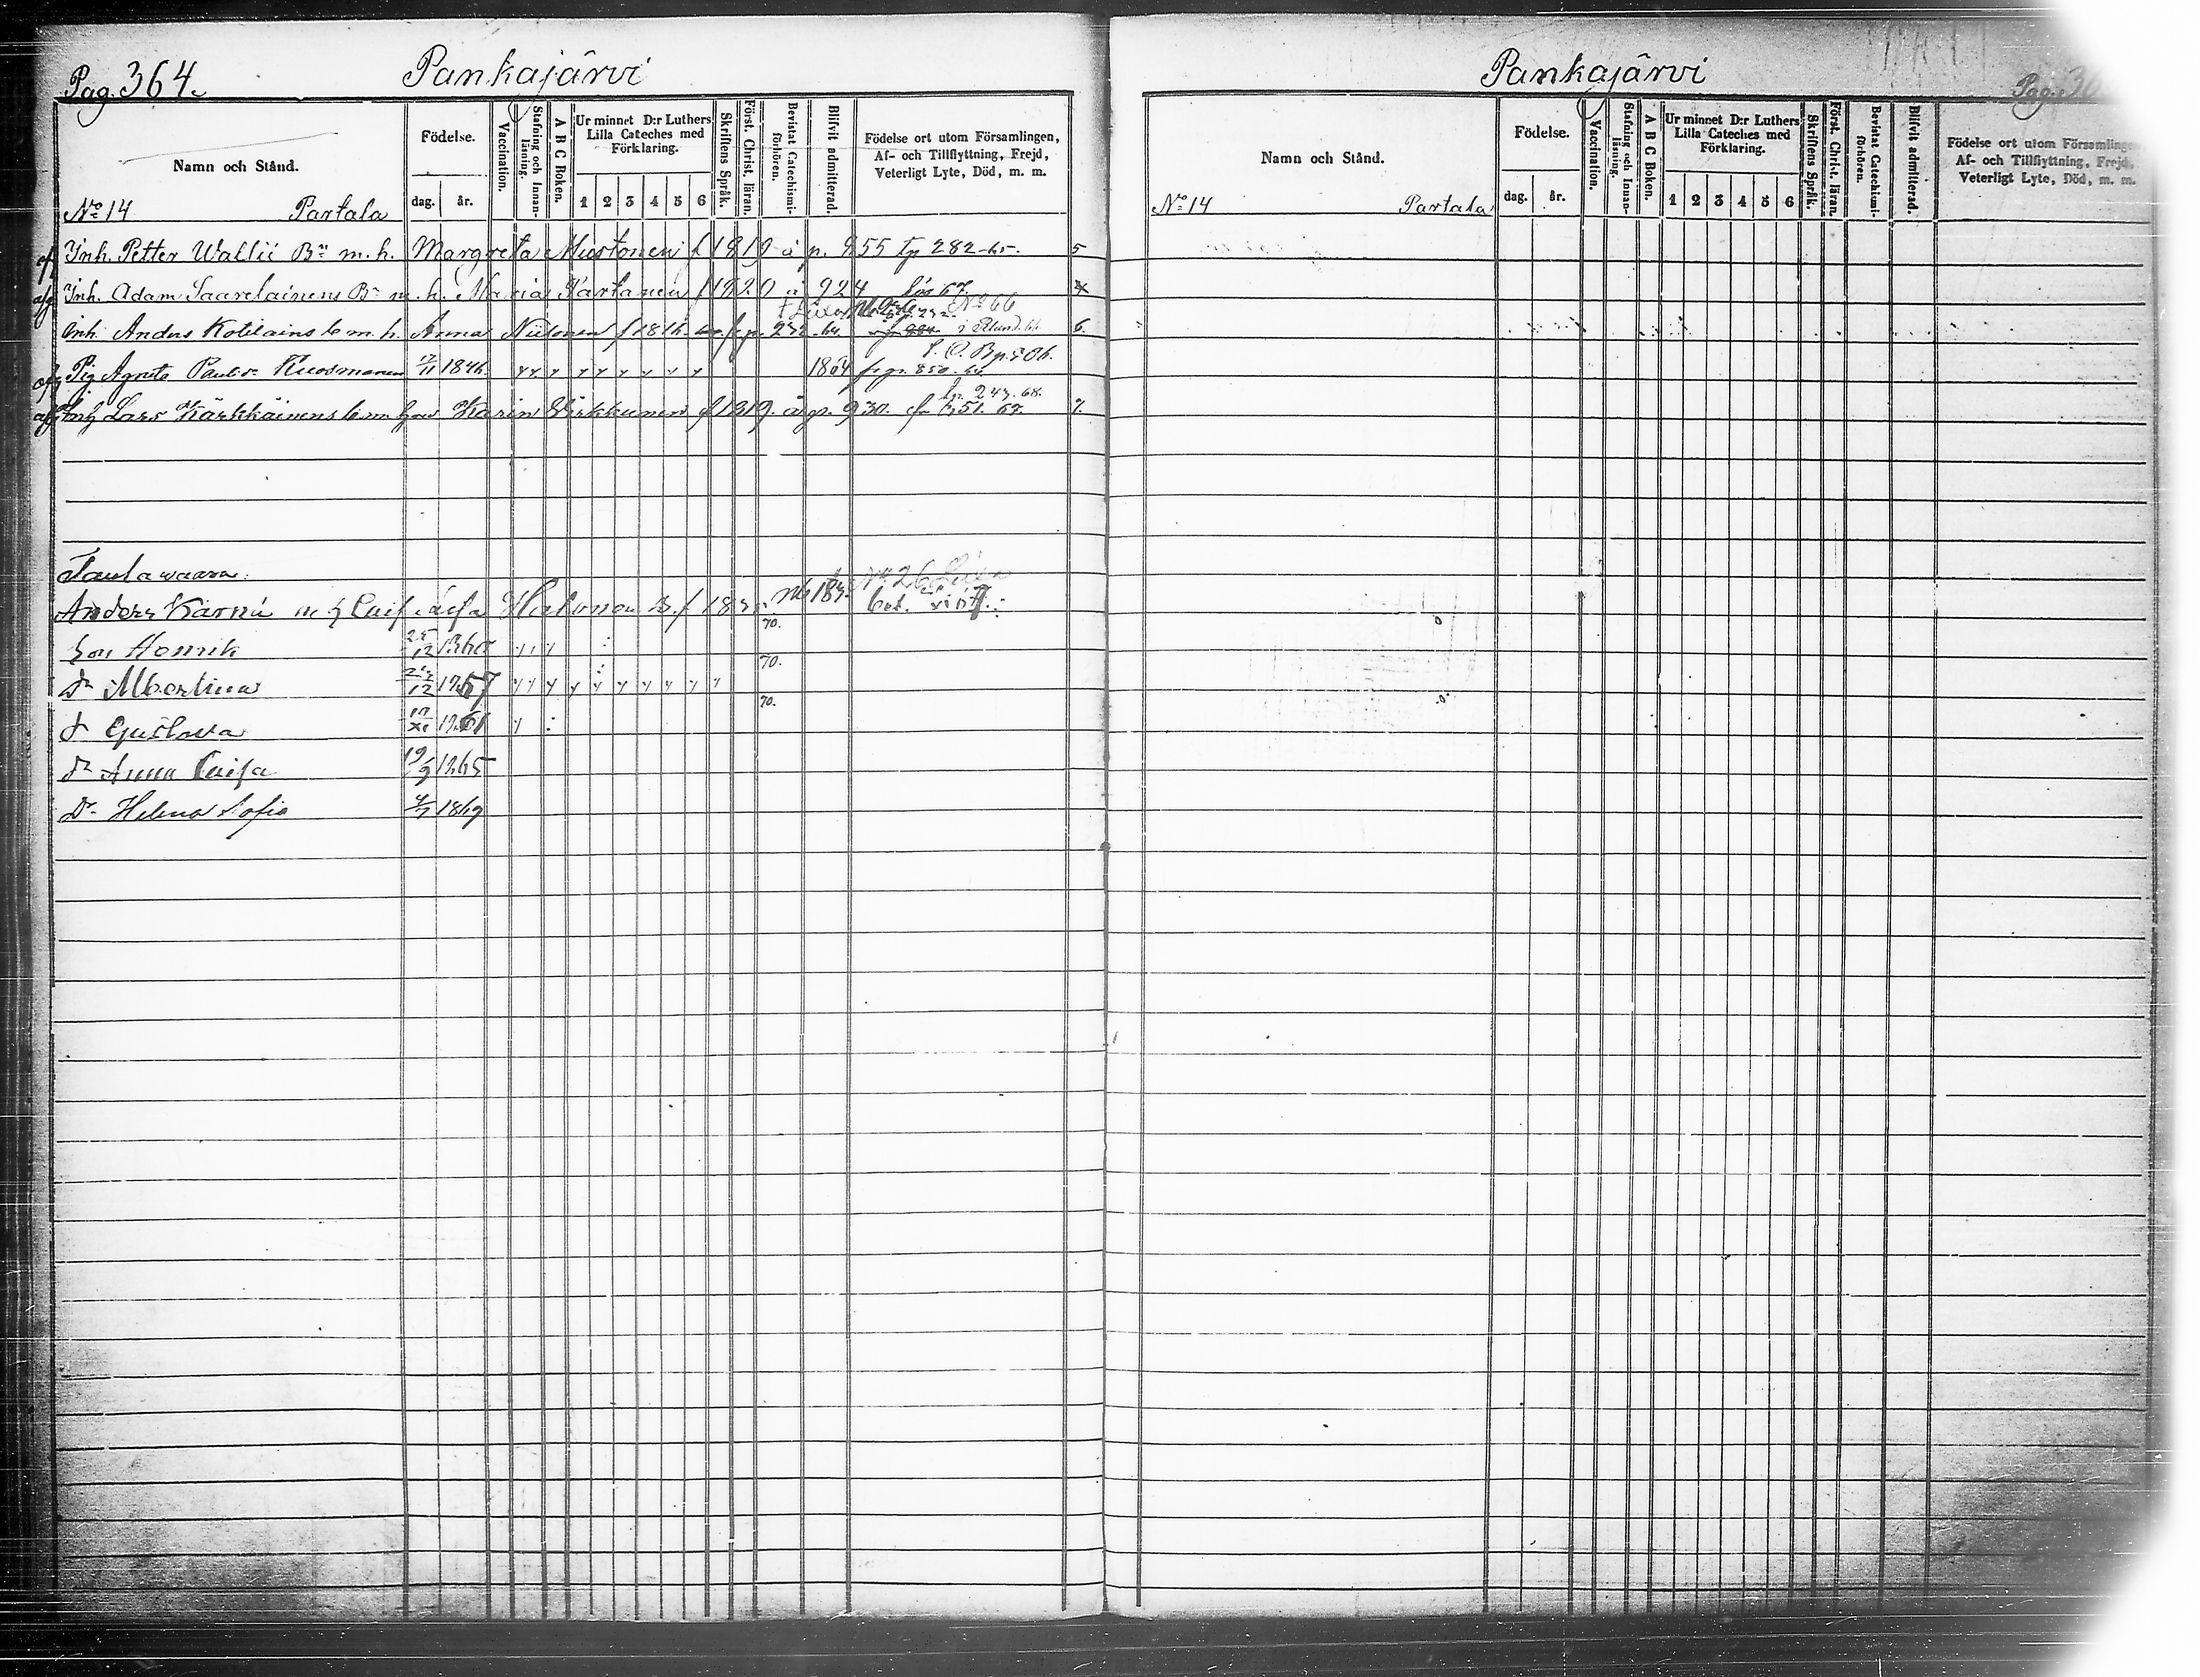 Pag. 364.
Pankajärvi
Namn och Stånd.
Födelse.
dag. år.
Vaccination.
Stafning och Innanläsning.
A B C Boken.
Ur minnet D:r Luthers Lilla Cateches med Förklaring.
1 2 3 4 5 6
Skriftens Språk.
Först. Christ. läran.
Bevistat Catechismiförhören.
Blifvit admitterad.
Födelse ort utom Församlingen, Af- och Tillflyttning, Frejd, Veterligt Lyte, Död, m. m.
No 14 Partala
Inh. Petter Wallii Bn m. h. Margreta Mustonen f 1819 à p. 955 tp 282-65. 5
Inh. Adam Saarelainens Bn m. h. Maria Partanen f 1820 à 924 67. 4
Inh. Anders Kotilains b m. h. Anna Niilonen f 1816 fr p. 232. 64. No 66 6.
Pig Agneta Paulsdr Kuosmanen 17/11 1846 1864 fr p. 850. 64.
Inh Lars Kärkkäinens b m h Karin Wirkkunen f 1819. à p. 930. 67. 243. 68. 7.
Taulawaara.
Anders Kärnä m h Caisa Halonen B. f No 26
Son Henrik 25/12 1860 70.
Dr Albertina 12 1857 70.
Dr Gustava 17/XI 1861 70.
Dr Anna Caisa 19/9 1865
Dr Helena Sofia 4/7 1869
Pankajärvi
Pag.
Namn och Stånd.
Födelse.
dag. år.
Vaccination.
Stafning och Innanläsning.
A B C Boken.
Ur minnet D:r Luthers Lilla Cateches med Förklaring.
1 2 3 4 5 6
Skriftens Språk.
Först. Christ. läran.
Bevistat Catechismiförhören.
Blifvit admitterad.
Födelse ort utom Församlingen, Af- och Tillflyttning, Frejd, Veterligt Lyte, Död, m. m.
No 14 Partala